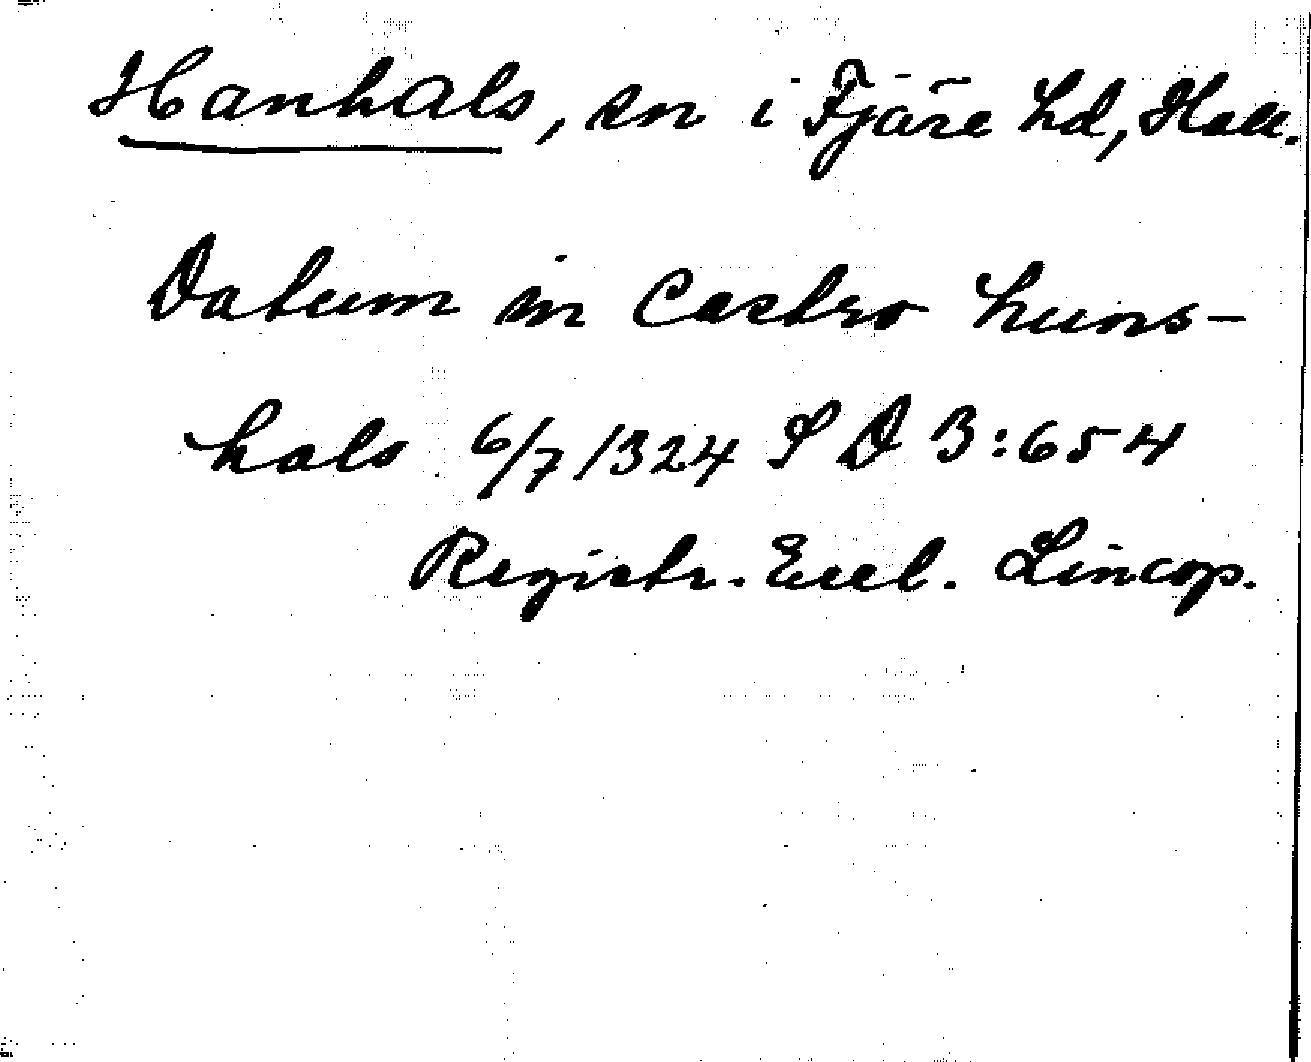 Hanhals, sn i Fjäre hd, Hall.
Datum in Castro huns-
hals 6/7 1324 SD 3:654
Registr. Eccl. Lincop.